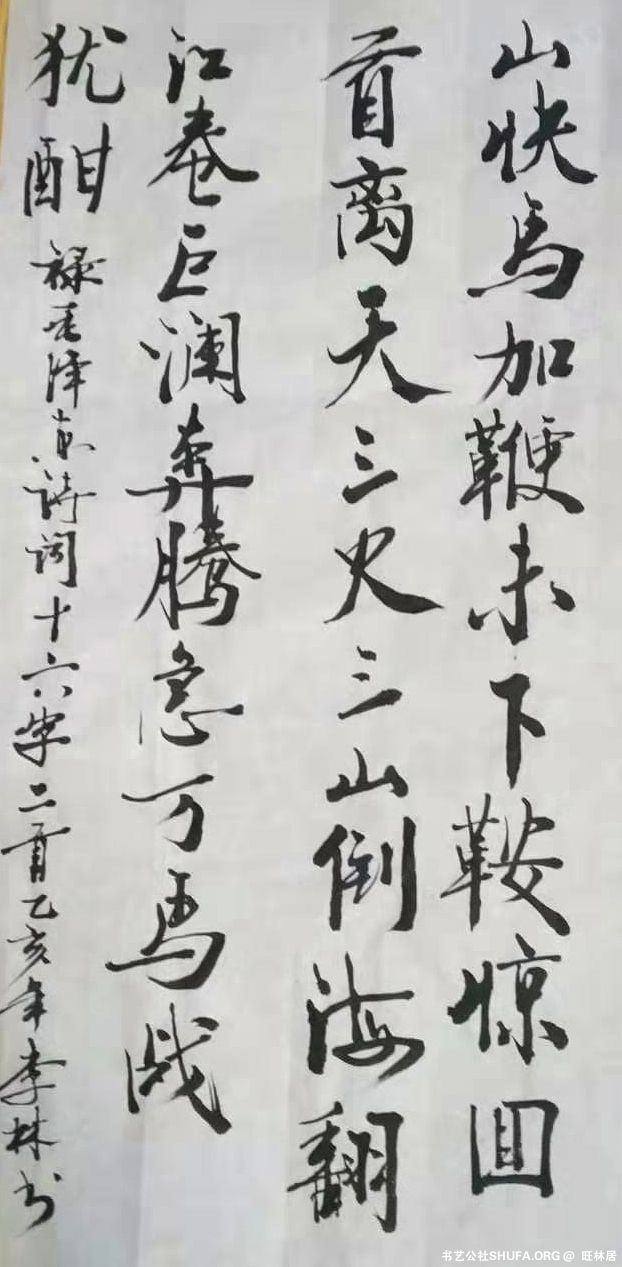 山快馬加鞭未下鞍惊回
首离天三尺三山倒海翻
江卷巨澜奔腾急万馬战
犹酣
禄毛泽东诗词十六字二首乙亥年李林书
书艺公社SHUFA.ORG @ 旺林居